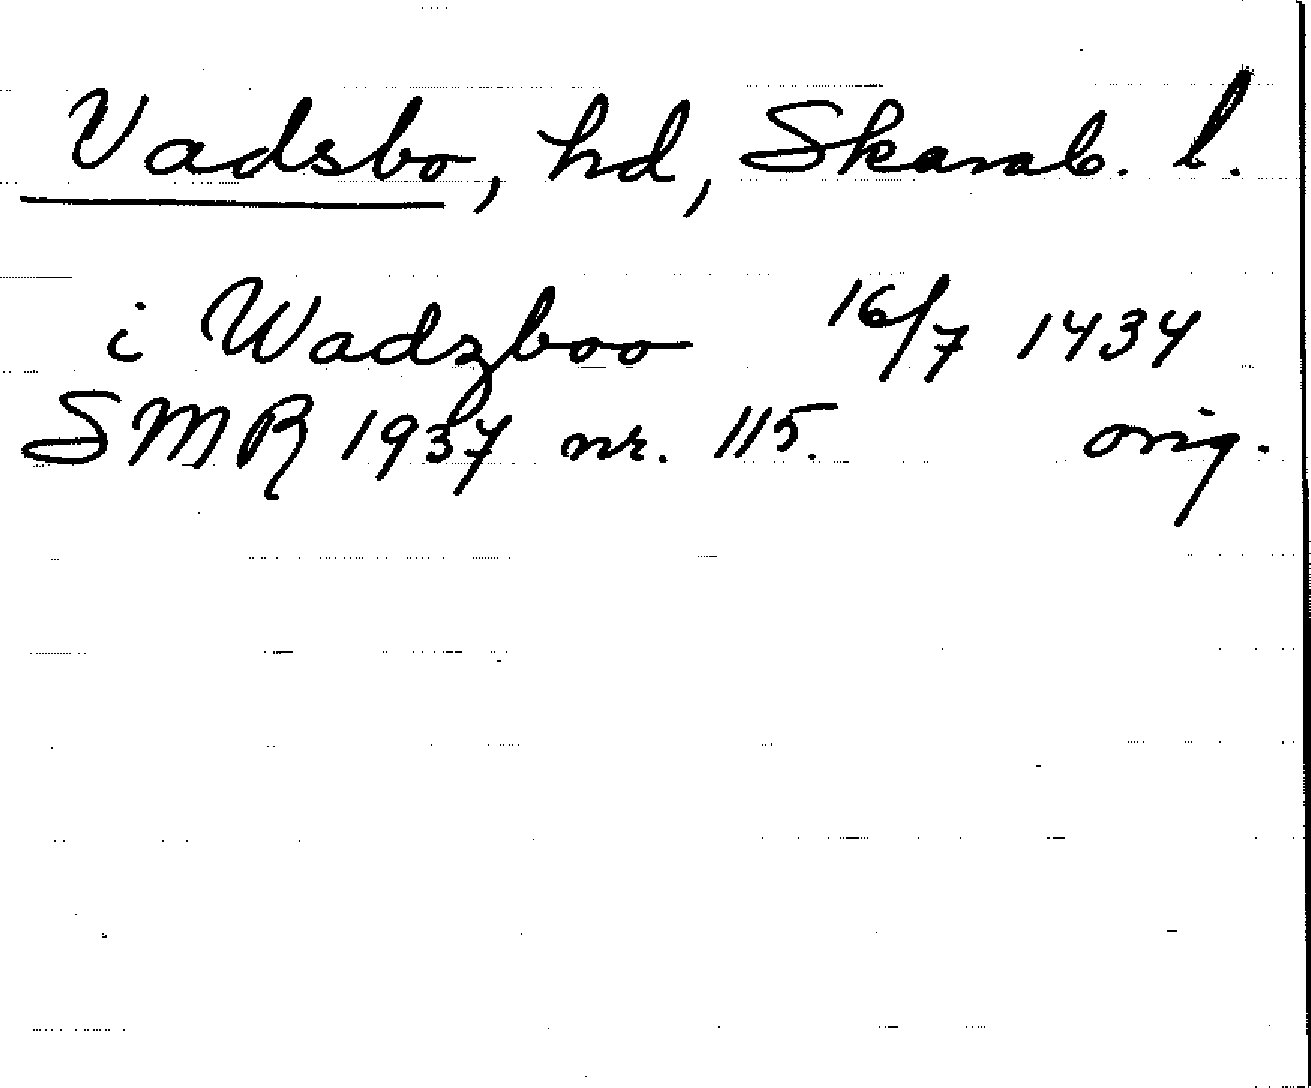 Vadsbo, hd, Skarab. l.
i Wadzboo 16/7 1434
SMR 1937 nr. 115. orig.